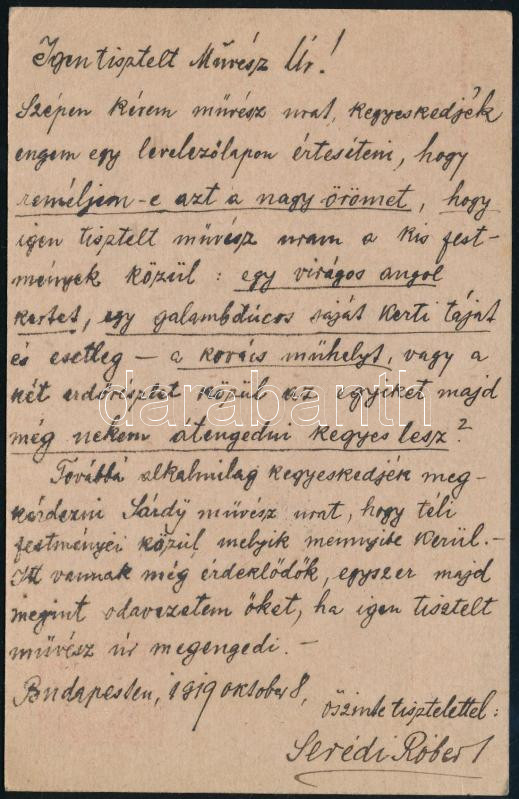 Igen tisztelt Művész Úr!
Szépen kérem művész urat, kegyeskedjék
engem egy levelezőlapon értesíteni, hogy
reméljem-e azt a nagy örömet, hogy
igen tisztelt művész uram a kis fest-
mények közül: egy virágos angol
kertet, egy galambdúcos saját kerti táját
és esetleg – a kovács műhelyt, vagy a
két erdőrésztet közül az egyiket majd
még nekem átengedni kegyes lesz?
Továbbá alkalmilag kegyeskedjék meg-
kérdezni Sárdy művész urat, hogy téli
festményei közül melyik mennyibe kerül.–
Itt vannak még érdeklődők, egyszer majd
megint odavezetem őket, ha igen tisztelt
művész úr megengedi.–
Budapesten, 1919 oktober 8,
őszinte tisztelettel:
Serédi Róbert
darabanth